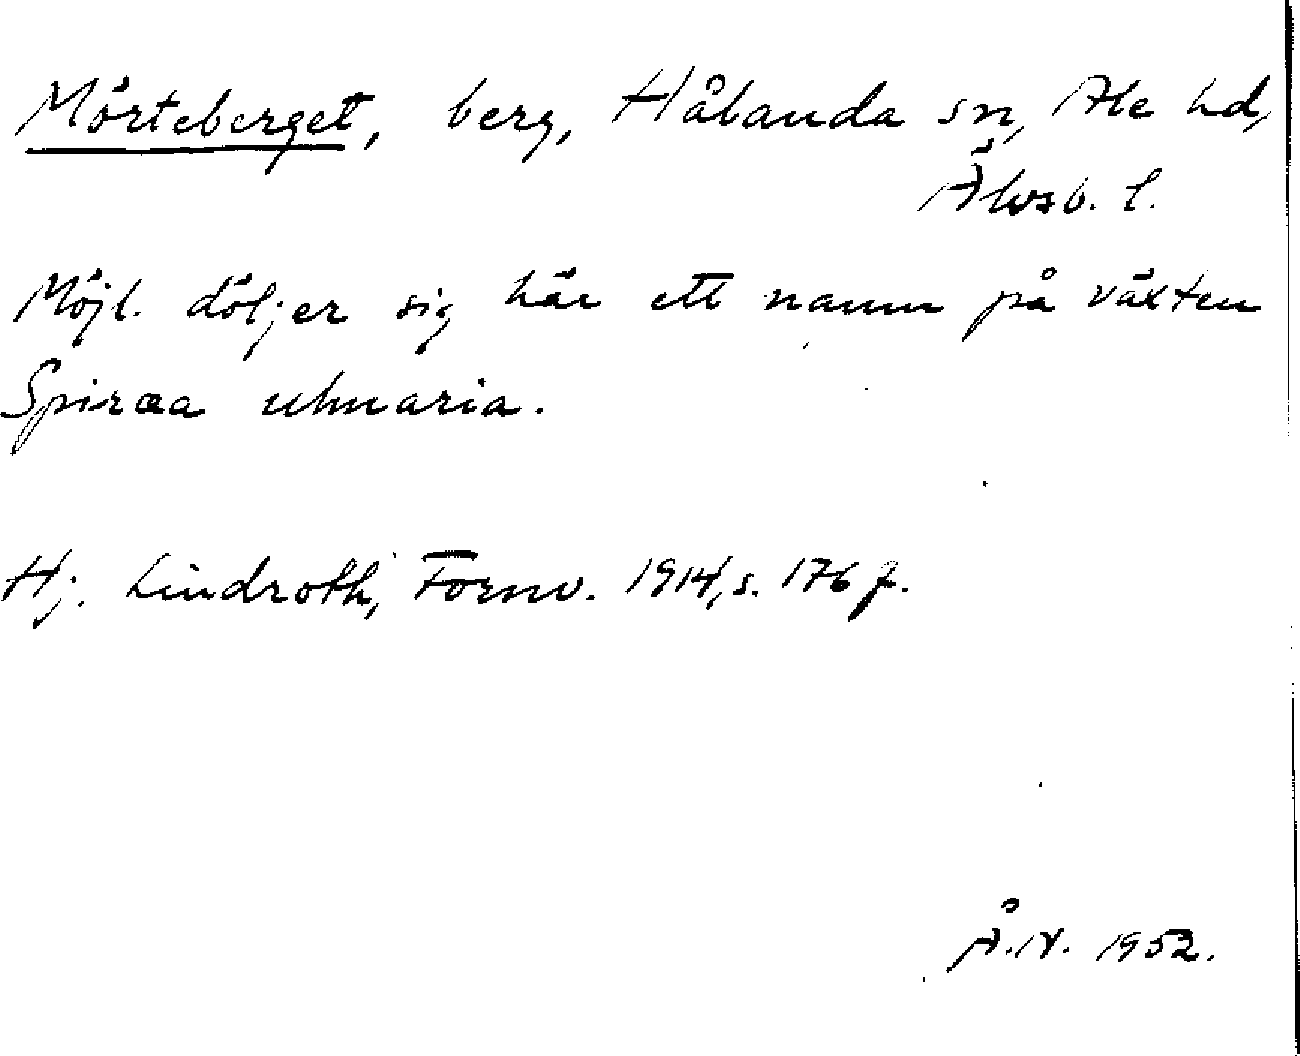 Mörteberget, berg, Hålanda sn, Ale hd,
Älvsb. l.
Möjl. döljer sig här ett namn på växten
Spiræa ulmaria.
Hj. Lindroth, Fornv. 1914, s. 176 f.
Å.N. 1952.